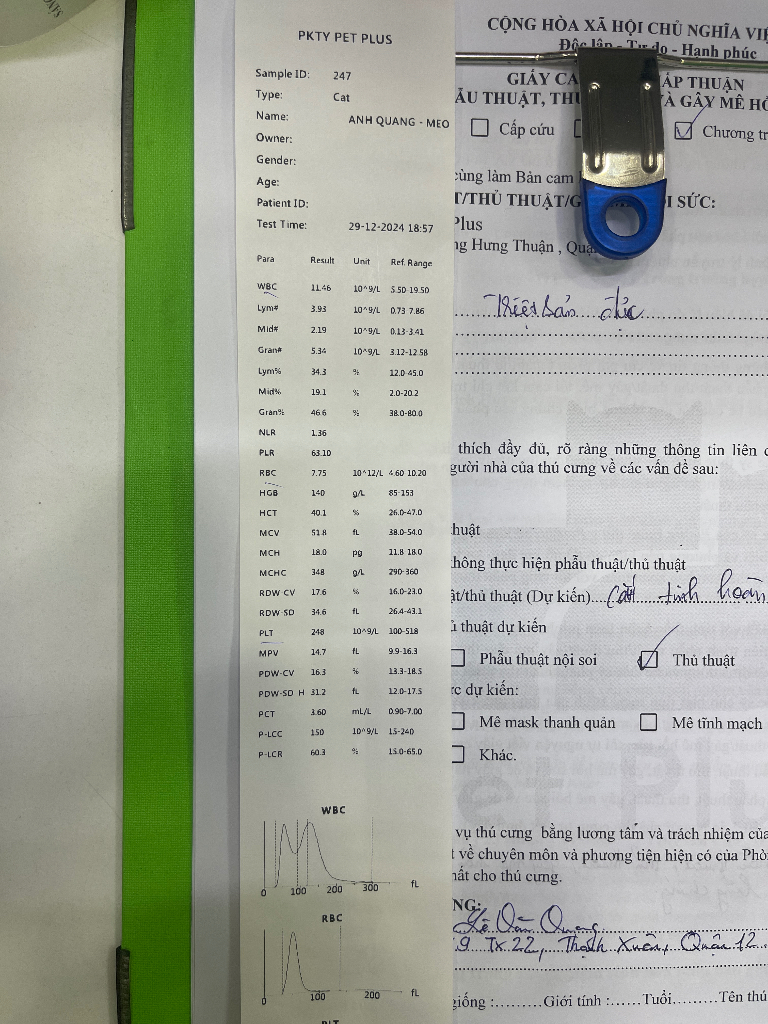 PKTY PET PLUS
Sample ID: 247
Type: Cat
Name: ANH QUANG - MEO
Owner:
Gender:
Age:
Patient ID:
Test Time: 29-12-2024 18:57
Para Result Unit Ref. Range
WBC 11.46 10^9/L 5.50-19.50
Lym# 3.93 10^9/L 0.73-7.86
Mid# 2.19 10^9/L 0.13-3.41
Gran# 5.34 10^9/L 3.12-12.58
Lym% 34.3 % 12.0-45.0
Mid% 19.1 % 2.0-20.2
Gran% 46.6 % 38.0-80.0
NLR 1.36
PLR 63.10
RBC 7.75 10^12/L 4.60-10.20
HGB 140 g/L 85-153
HCT 40.1 % 26.0-47.0
MCV 51.8 fL 38.0-54.0
MCH 18.0 pg 11.8-18.0
MCHC 348 g/L 290-360
RDW-CV 17.6 % 16.0-23.0
RDW-SD 34.6 fL 26.4-43.1
PLT 248 10^9/L 100-518
MPV 14.7 fL 9.9-16.3
PDW-CV 16.3 % 13.3-18.5
PDW-SD H 31.2 fL 12.0-17.5
PCT 3.60 mL/L 0.90-7.00
P-LCC 150 10^9/L 15-240
P-LCR 60.3 % 15.0-65.0
WBC
0 100 200 300 fL
RBC
0 100 200 fL
PLT
CỘNG HÒA XÃ HỘI CHỦ NGHĨA VIỆ
Độc lập - Tự do - Hạnh phúc
GIẤY CA ẤP THUẬN
ẪU THUẬT, THỦ VÀ GÂY MÊ HỒ
Cấp cứu Chương tr
cùng làm Bản cam
T/THỦ THUẬT/G I SỨC:
Plus
ng Hưng Thuận , Quậ
đức
thích đầy đủ, rõ ràng những thông tin liên q
gười nhà của thú cưng về các vấn đề sau:
thuật
không thực hiện phẫu thuật/thủ thuật
ật/thủ thuật (Dự kiến)... Cắt tinh hoàn
ủ thuật dự kiến
Phẫu thuật nội soi Thủ thuật
ực dự kiến:
Mê mask thanh quản Mê tĩnh mạch
Khác.
vụ thú cưng bằng lương tâm và trách nhiệm của
t về chuyên môn và phương tiện hiện có của Phò
hất cho thú cưng.
NG:
Lê Văn Quang
9 Tx 22, Thạnh Xuân, Quận 12
giống :.........Giới tính :......Tuổi.........Tên thú